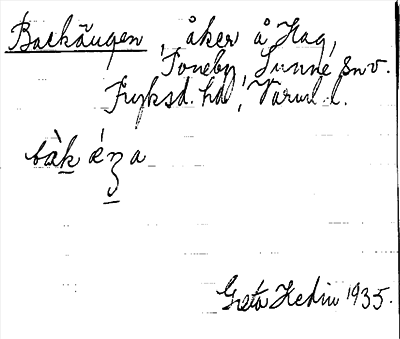 Backängen, åker å Hag,
Toneby, Sunne snv.
Fryksd. hd, Värml. l.
bàk éŋa
Greta Hedin 1935.